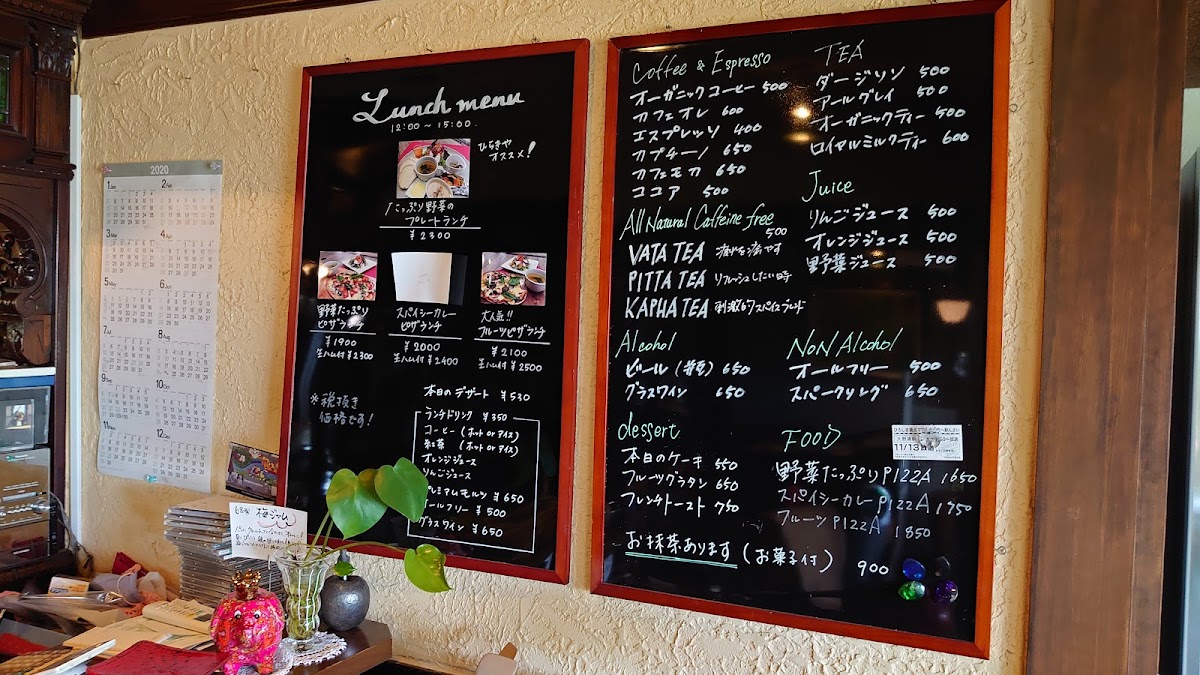 2020
1 Jan
2 Feb
3 Mar
4 Apr
5 May
6 Jun
7 Jul
8 Aug
9 Sep
10 Oct
11 Nov
12 Dec
Lunch menu
12:00〜15:00.
ひらきや
オススメ!
たっぷり野菜の
プレートランチ
¥2300
野菜たっぷり
ピザランチ
¥1900
生ハム付¥2300
スパイシーカレー
ピザランチ
¥2000
生ハム付¥2400
大人気!!
フルーツピザランチ
¥2100
生ハム付¥2500
※税抜き
価格です!
本日のデザート ¥530
ランチドリンク ¥350
コーヒー(ホット or アイス)
紅茶 (ホット or アイス)
オレンジジュース
りんごジュース
プレミアムモルツ ¥650
オールフリー ¥500
グラスワイン ¥650
梅ジャム
Coffee & Espresso
オーガニックコーヒー 500
カフェオレ 600
エスプレッソ 400
カプチーノ 650
カフェモカ 650
ココア 500
All Natural Caffeine free
500
VATA TEA
PITTA TEA リフレッシュしたい時
KAPHA TEA 刺激的スパイスブレンド
Alcohol
ビール 650
グラスワイン 650
dessert
本日のケーキ 550
フルーツグラタン 650
フレンチトースト 750
お抹茶あります (お菓子付) 900
TEA
ダージリン 500
アールグレイ 500
オーガニックティー 500
ロイヤルミルクティー 600
Juice
りんごジュース 500
オレンジジュース 500
野菜ジュース 500
NoN Alcohol
オールフリー 500
スパークリング 650
FOOD
11/13
野菜たっぷりPIZZA 1650
スパイシーカレーPIZZA 1750
フルーツPIZZA 1850